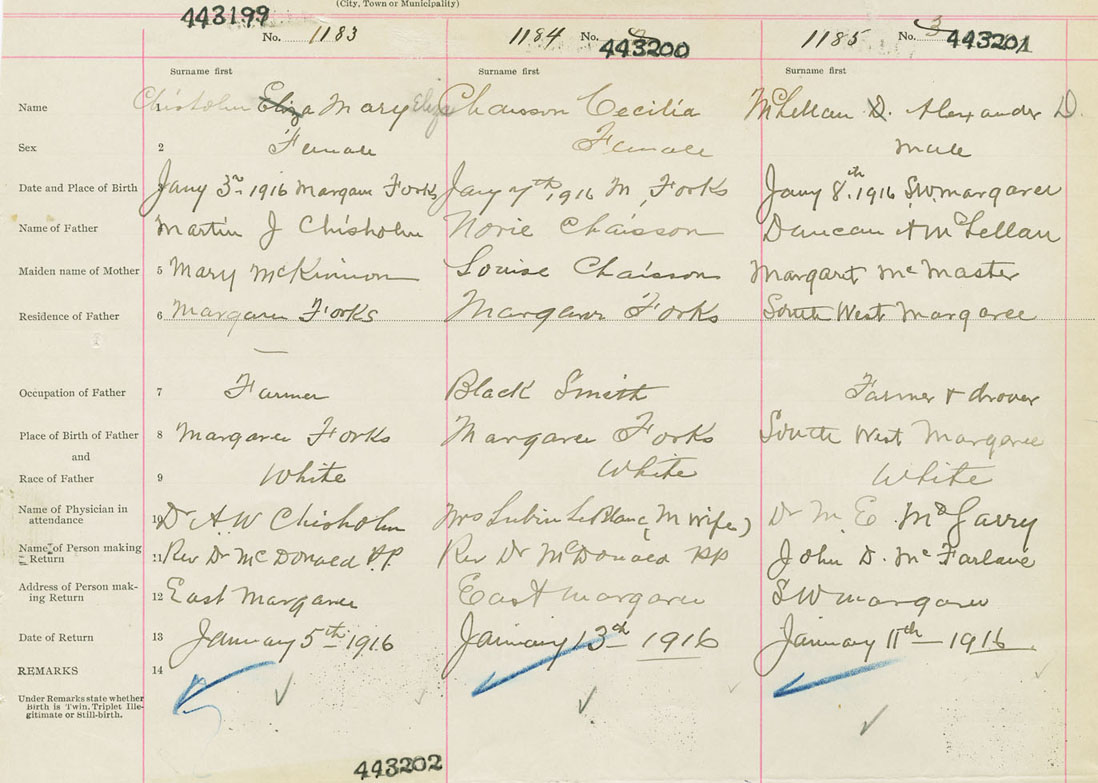 (City, Town or Municipality)
443199 No. 1183 1184 No. 2 443200 1185 No. 3 443201
Surname first Surname first Surname first
Name 1 Chisholm Eliza Mary Eliza Chaisson Cecilia McLellan D. Alexander D.
Sex 2 Female Female male
Date and Place of Birth 3 Jany 3rd 1916 Margaree Forks Jany 7th, 1916 M, Forks Jany 8th. 1916 S.W. margaree
Name of Father 4 Martin J Chisholm Norie Chaisson Duncan A McLellan
Maiden name of Mother 5 Mary McKinnon Louise Chaisson Margaret McMaster
Residence of Father 6 Margaree Forks Margaree Forks South West Margaree
Occupation of Father 7 Farmer Black Smith Farmer & drover
Place of Birth of Father 8 Margaree Forks Margaree Forks South West Margaree
and
Race of Father 9 White White White
Name of Physician in
attendance 10 Dr A W Chisholm Mrs Lubin LeBlanc (M wife) Dr M. E. McGarry
Name of Person making
Return 11 Rev Dr McDonald P.P. Rev Dr McDonald PP John D. McFarlane
Address of Person mak-
ing Return 12 East Margaree East margaree S W margaree
Date of Return 13 January 5th 1916 January 13th 1916 January 11th 1916
REMARKS 14
Under Remarks state whether
Birth is Twin, Triplet Ille-
gitimate or Still-birth.
443202